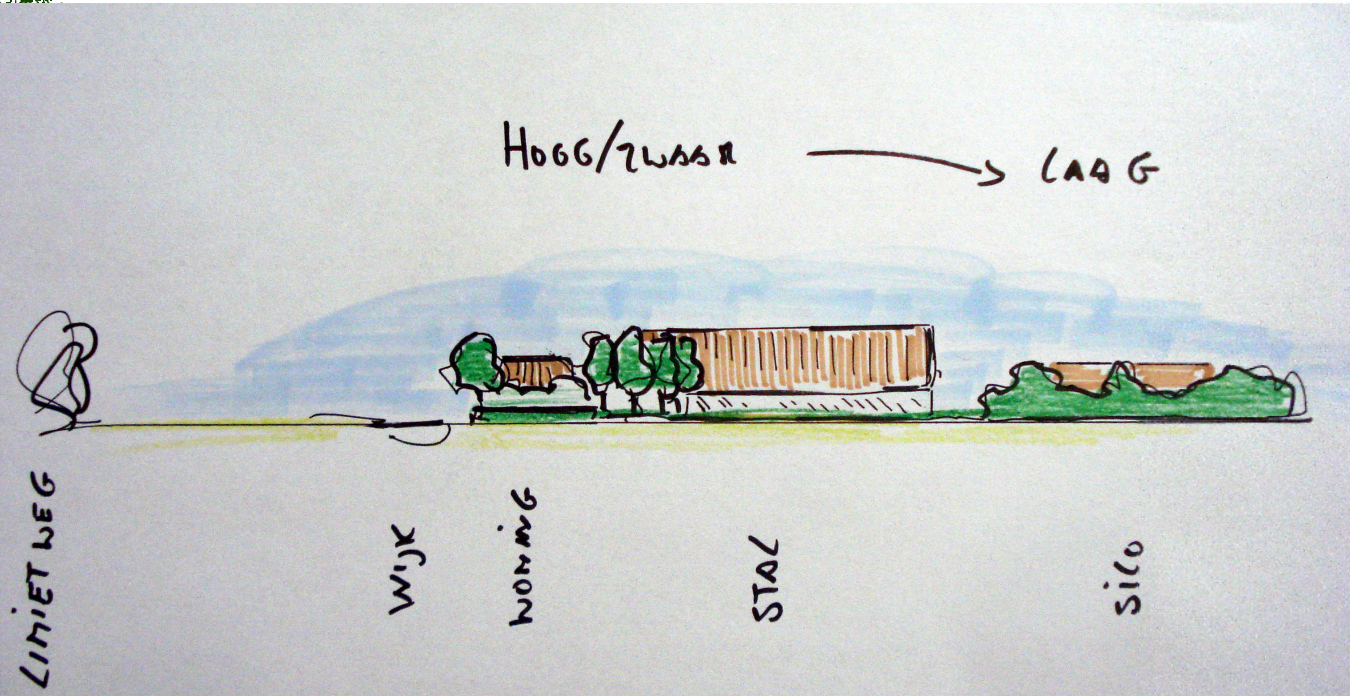 HOOG/ZWAAR
LAAG
LIMIETWEG
WIJK
WONING
STAL
SILO